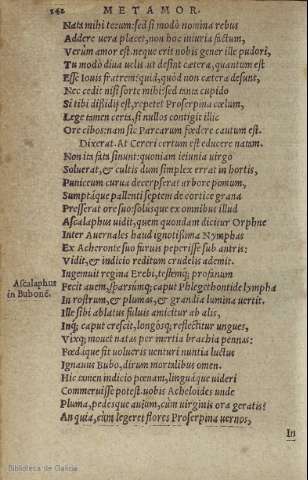 242 METAMOR.
Nata mihi tecum: sed si modò nomina rebus
Addere uera placet, non hoc iniuria factum,
Verùm amor est. neque erit nobis gener ille pudori,
Tu modò diua uelis. ut desint cætera, quantum est
Esse Iouis fratrem: quid, quòd non cætera desunt,
Nec cedit nisi sorte mihi: sed tanta cupido
Si tibi dissidij est, repetet Proserpina cœlum,
Lege tamen certa, si nullos contigit illic
Ore cibos: nam sic Parcarum fœdere cautum est.
Dixerat. At Cereri certum est educere natam.
Non ita fata sinunt: quoniam ieiunia uirgo
Soluerat, & cultis dum simplex errat in hortis,
Puniceum curua decerpserat arbore pomum,
Sumptáque pallenti septem de cortice grana
Presserat ore suo: solúsque ex omnibus illud
Ascalaphus uidit, quem quondam dicitur Orphne
Inter Auernales haud ignotissima Nymphas
Ex Acheronte suo furuis peperisse sub antris:
Vidit, & indicio reditum crudelis ademit.
Ingemuit regina Erebi, testemq; profanum
Ascalaphus
in Bubonē.
Fecit auem, sparsumq; caput Phlegethontide lympha
In rostrum, & plumas, & grandia lumina uertit.
Ille sibi ablatus fuluis amicitur ab alis,
Inq; caput crescit, longosq; reflectitur ungues,
Vixq; mouet natas per inertia brachia pennas:
Fœdáque fit uolucris uenturi nuntia luctus
Ignauus Bubo, dirum mortalibus omen.
Hic tamen indicio pœnam, linguáque uideri
Commeruisse potest. uobis Acheloides unde
Pluma, pedesque auium, cùm uirginis ora geratis?
An quia, cùm legeret flores Proserpina uernos,
In
Biblioteca de Galicia